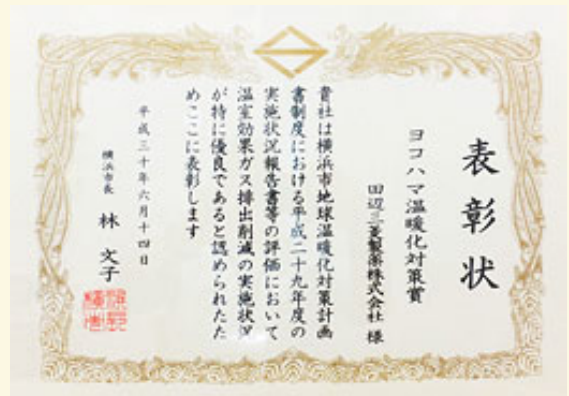 表彰状
ヨコハマ温暖化対策賞
田辺三菱製薬株式会社 様
貴社は横浜市地球温暖化対策計画
書制度における平成二十九年度の
実施状況報告書等の評価において
温室効果ガス排出削減の実施状況
が特に優良であると認められたた
めここに表彰します
平成三十年六月十四日
横浜市長 林 文子